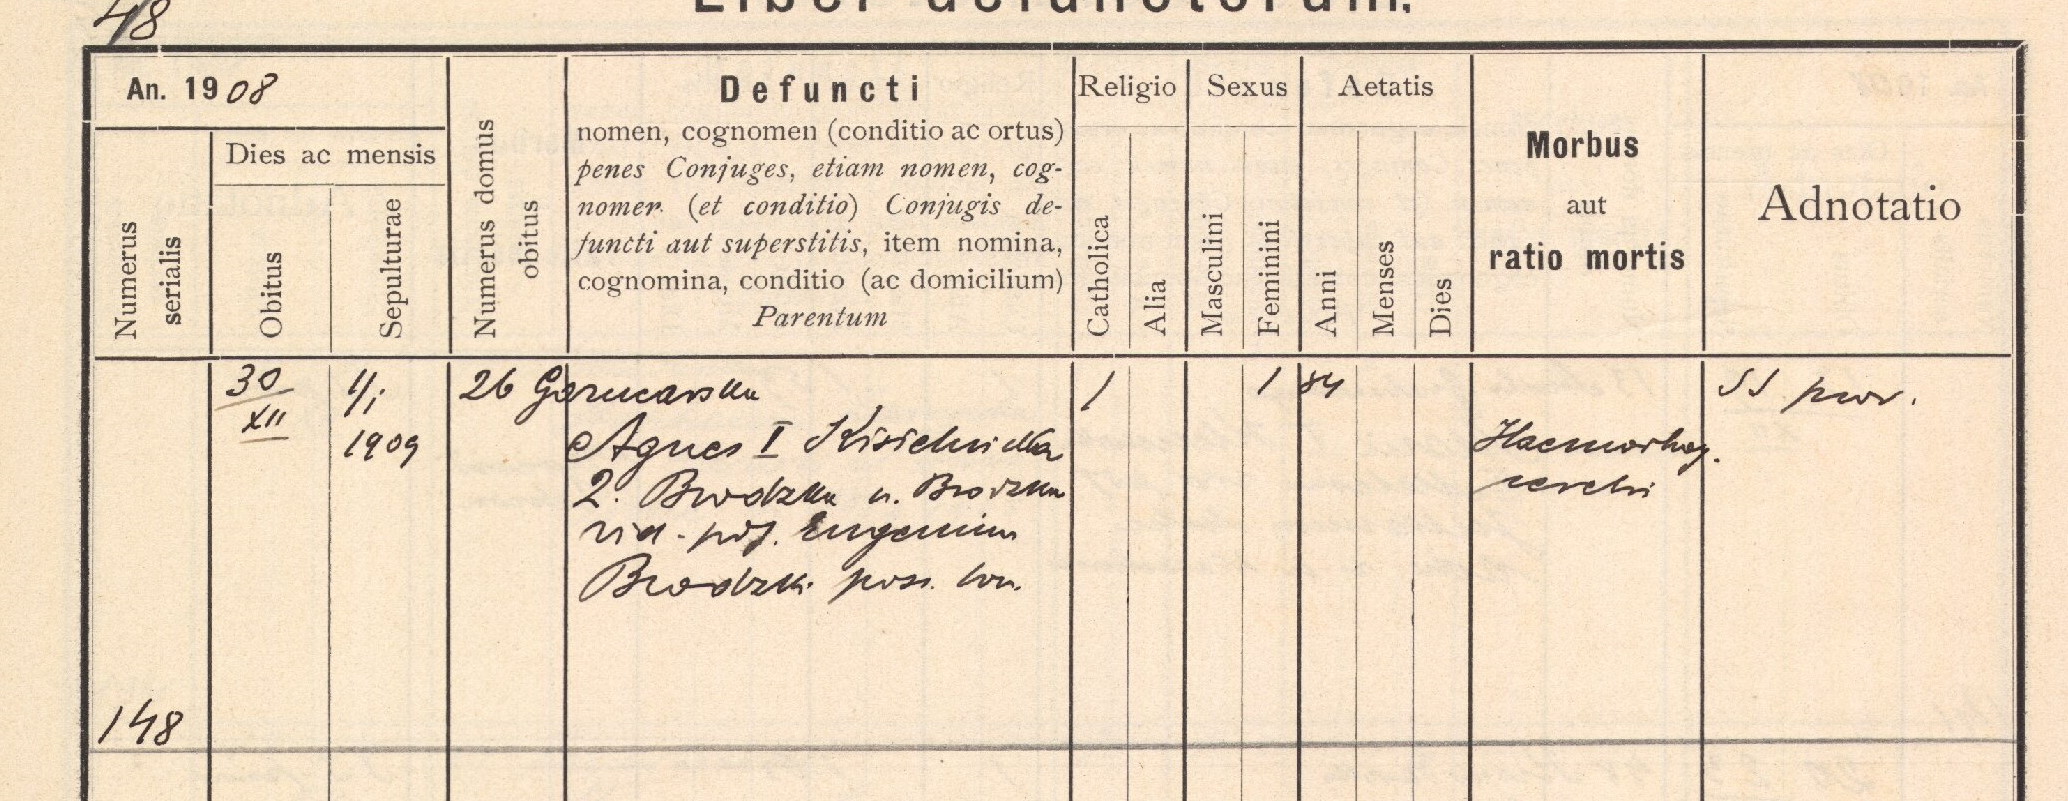 48
Liber defunctorum.
An. 1908
Numerus serialis
Dies ac mensis
Obitus
Sepulturae
Numerus domus obitus
Defuncti
nomen, cognomen (conditio ac ortus)
penes Conjuges, etiam nomen, cog-
nomen (et conditio) Conjugis de-
functi aut superstitis, item nomina,
cognomina, conditio (ac domicilium)
Parentum
Religio
Catholica
Alia
Sexus
Masculini
Feminini
Aetatis
Anni
Menses
Dies
Morbus
aut
ratio mortis
Adnotatio
30 1/i 26 1 1 84 SS prov.
XII 1909
Agnes I
2. Brodzka n. Brodzka
vid. Eugenium
Brodzki poss. bon.
Haemorhag.
cerebri
148